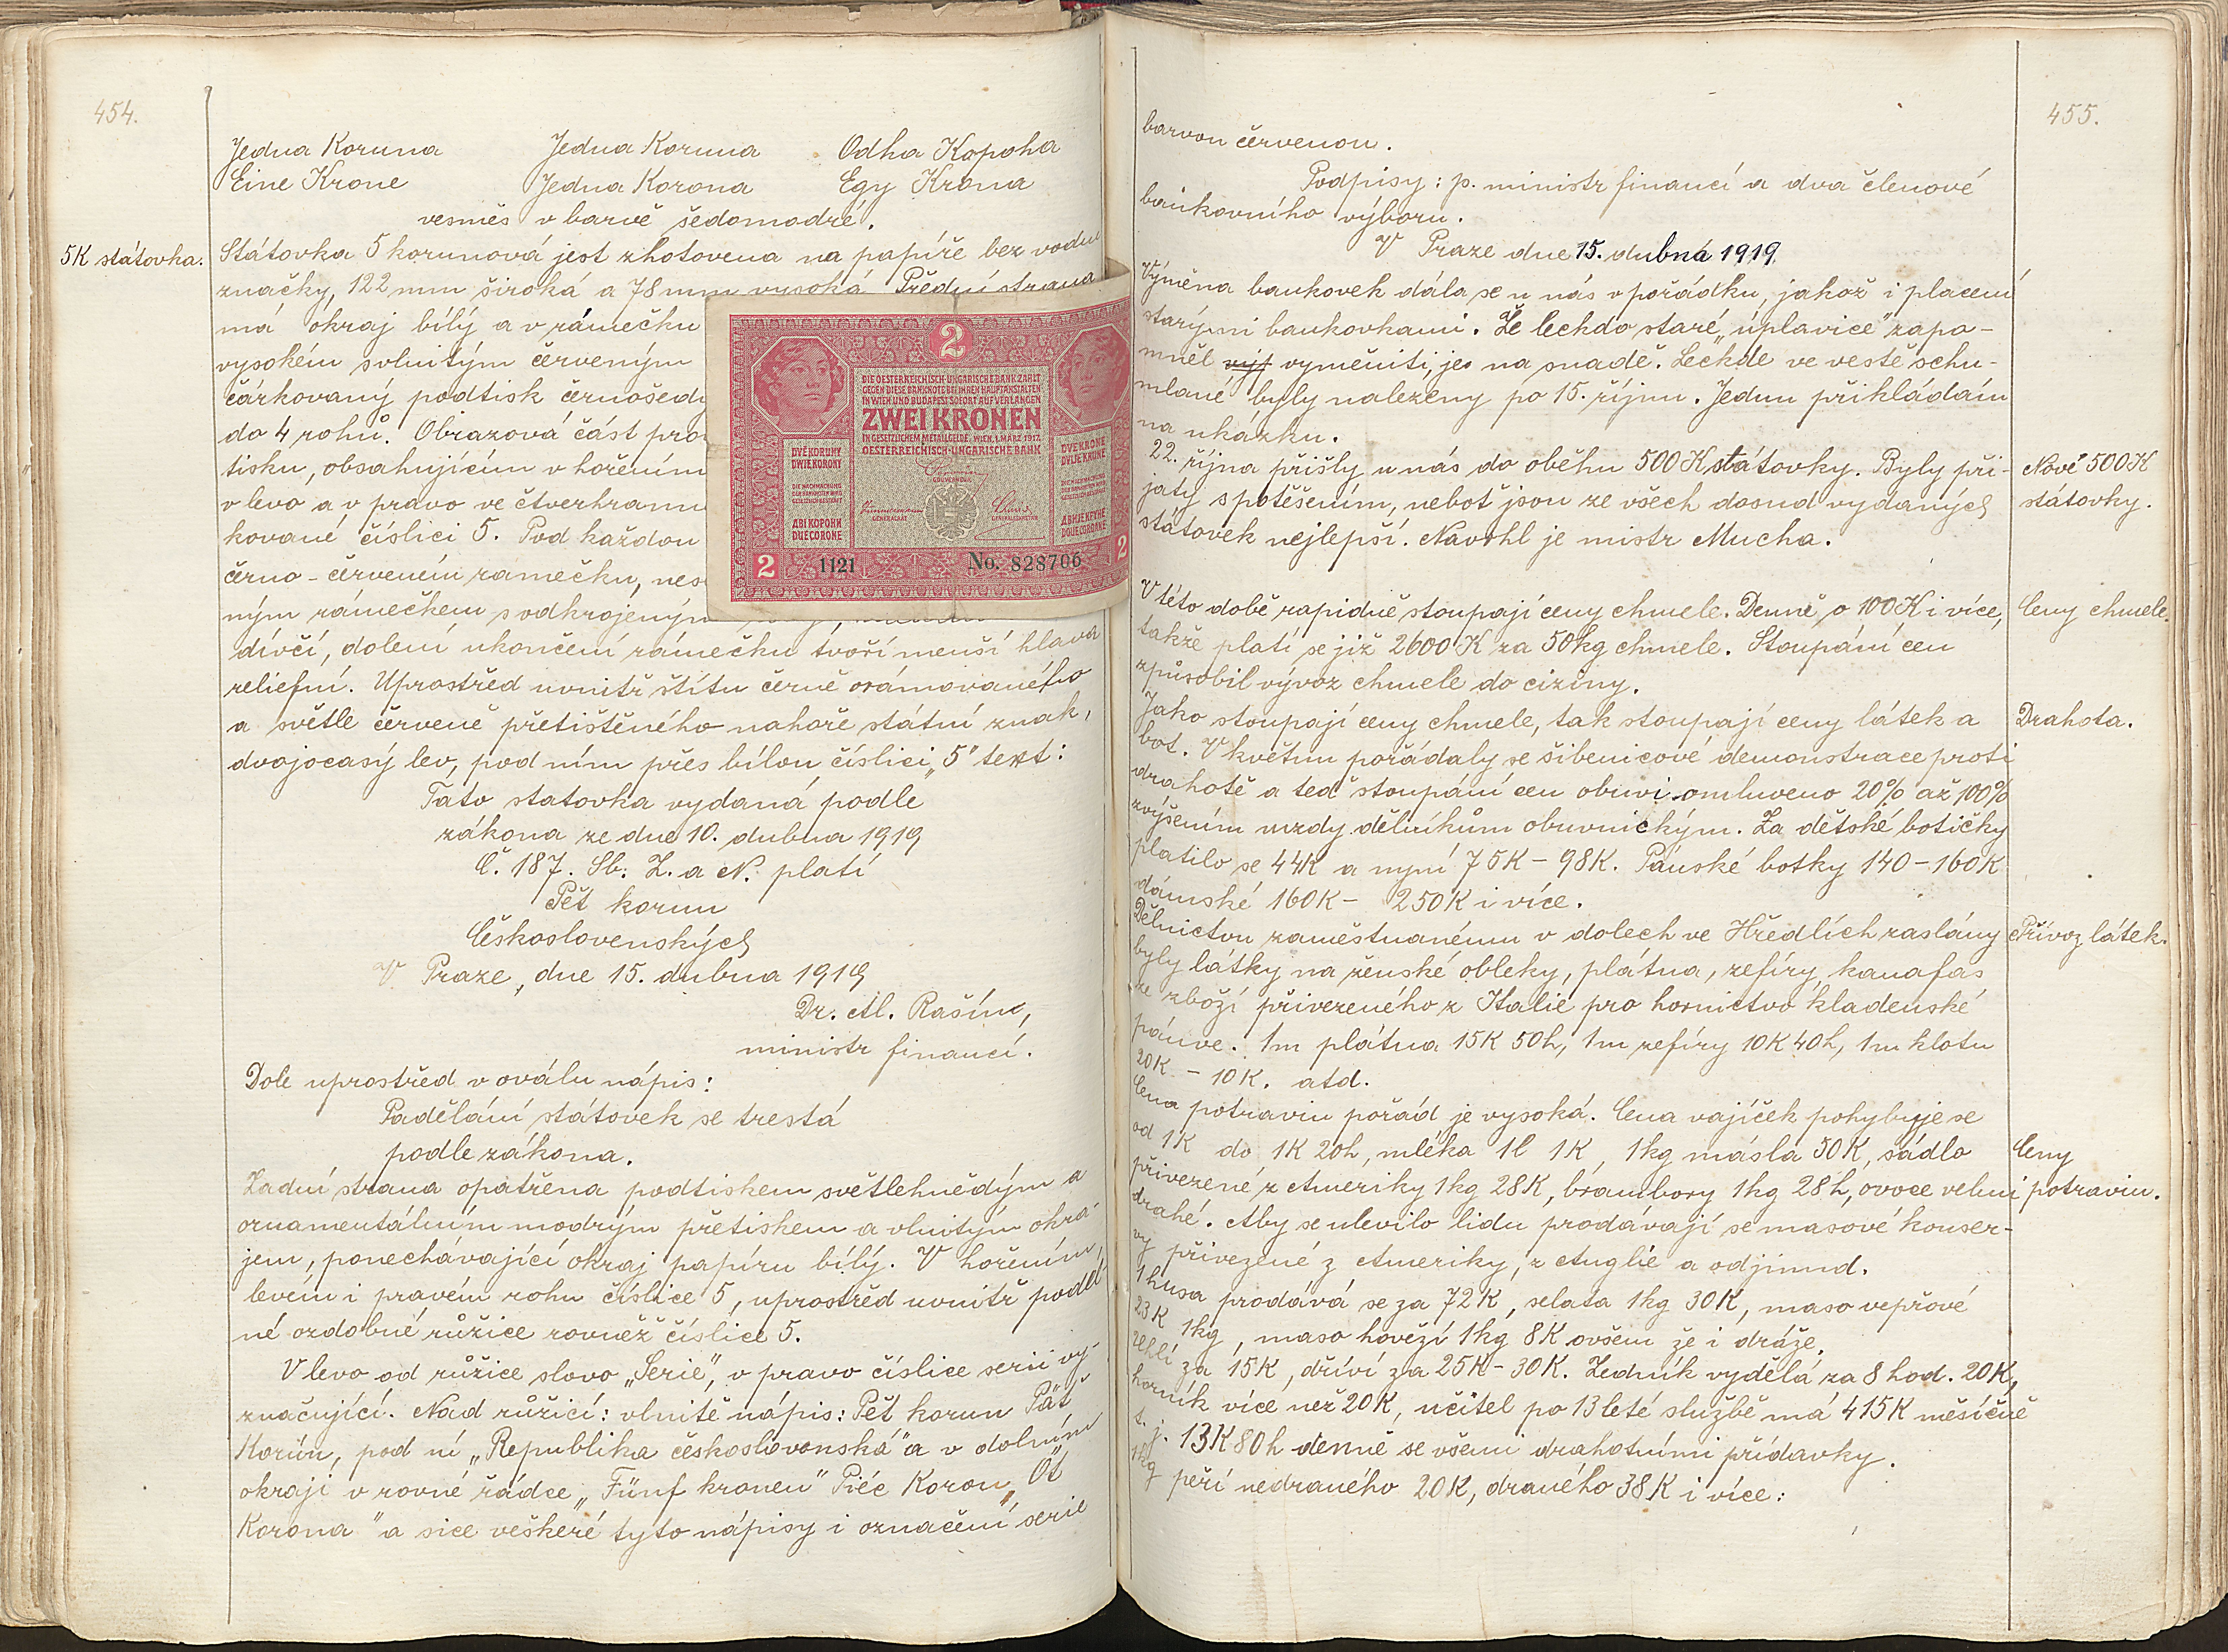 454.
Jedna Koruna Jedna Koruna Odha Kopoha
Eine Krone Jedna Korona Egy Krona
vesměs v barvě šedomodré.
5K státovka.
Státovka 5 korunová jest zhotovena na papíře bez vodní
značky, 122 mm široká a 78 mm vysoká. Přední strana
má okraj bílý a v rámečku
vysokém vlnitým červeným
čárkovaný podtisk černošedý
do 4 rohů. Obrazová část pro
tisku, obsahujícím v hořením
v levo a v pravo ve čtverhranu
kované číslici 5. Pod každou
černo-červeném ramečku, nes
ným rámečkem s odkrojeným
dívčí, dolení ukončení rámečku tvoří menší hlava
reliefní. Uprostřed uvnitř štítu černě orámovaného
a světle červeně přetištěného nahoře státní znak,
dvojocasý lev, pod ním přes bílou číslici „5" text:
Tato statovka vydaná podle
zákona ze dne 10. dubna 1919
Č. 187. Sb. Z. a N. platí
Pět korun
Československých
V Praze, dne 15. dubna 1919
Dr. Al. Rašín,
ministr financí.
Dole uprostřed v oválu nápis:
Padělání státovek se trestá
podle zákona.
Zadní strana opatřena podtiskem světlehnědým a
ornamentálním modrým přetiskem a vlnitým okra-
jem, ponechávající okraj papíru bílý. V hořením
levém i pravém rohu číslice 5, uprostřed uvnitř podél
né ozdobné růžice rovněž číslice 5.
V levo od růžice slovo „Serie", v pravo číslice serii vy-
značující. Nad růžicí: vlnitě nápis: Pět korun Päť
Korún, pod ní „Republika československá" a v dolním
okraji v rovné řádce „Fünf kronen" Pięć Koron „Öt
Korona" a sice veškeré tyto nápisy i označení serie
2
DIE OESTERREICHISCH-UNGARISCHE BANK ZAHLT
GEGEN DIESE BANKNOTE BEI IHREN HAUPTANSTALTEN
IN WIEN UND BUDAPEST SOFORT AUF VERLANGEN
ZWEI KRONEN
IN GESETZLICHEM METALLGELDE. WIEN, 1. MÄRZ 1917.
OESTERREICHISCH-UNGARISCHE BANK
DVĚ KORUNY
DWIE KORONY
DIE NACHMACHUNG
DER BANKNOTEN WIRD
GESETZLICH BESTRAFT
ДВІ КОРОНИ
DUE CORONE
GOUVERNEUR
GENERALRAT
GENERALSEKRETÄR
DVE KRONE
DVIJE KRUNE
2 1121 No. 828706 2
455.
barvou červenou.
Podpisy: p. ministr financí a dva členové
bankovního výboru.
V Praze dne 15. dubna 1919.
Výměna bankovek dála se u nás v pořádku, jakož i placení
starými bankovkami. Že leckdo staré „úplavice" zapo-
mněl výj vyměniti, je na snadě. Leckde ve vestě schu-
mlané byly nalezeny po 15. říjnu. Jednu přikládám
na ukázku.
22. října přišly u nás do oběhu 500 K státovky. Byly při-
jaty s potěšením, neboť jsou ze všech dosud vydaných
státovek nejlepší. Navrhl je mistr Mucha.
Nové 500 K
státovky.
V této době rapidně stoupají ceny chmele. Denně o 100 K i více,
takže platí se již 2600 K za 50 kg chmele. Stoupání cen
způsobil vývoz chmele do ciziny.
Ceny chmele.
Jako stoupají ceny chmele, tak stoupají ceny látek a
bot. V květnu pořádaly se šibenicové demonstrace proti
drahotě a teď stoupání cen obuvi omluveno 20% až 100%
zvýšením mzdy dělníkům obuvnickým. Za dětské botičky
platilo se 44K a nyní 75K - 98K. Pánské botky 140 - 160K
dámské 160K - 250K i více.
Drahota.
Dělnictvu zaměstnanému v dolech ve Hředlích zaslány
byly látky na ženské obleky, plátna, zefíry, kanafas
ze zboží přivezeného z Italie pro hornictvo kladenské
pánve. 1m plátna 15K 50h, 1m zefíry 10K 40h, 1m klotu
20K - 10K. atd.
Přívoz látek.
Cena potravin pořád je vysoká. Cena vajíček pohybuje se
od 1K do 1K 20h, mléka 1l 1K, 1kg másla 50K, sádlo
přivezené z Ameriky 1kg 28K, brambory 1kg 28h, ovoce velmi
drahé. Aby se ulevilo lidu prodávají se masové konser-
vy přivezené z Ameriky, z Anglie a odjinud.
1 husa prodává se za 72K, selata 1kg 30K, maso vepřové
23K 1kg, maso hovězí 1kg 8K ovšem že i dráže,
uhlí za 15K, dříví za 25K - 30K. Zedník vydělá za 8 hod. 20K,
horník více než 20K, učitel po 13leté službě má 415K měsíčně
t. j. 13K 80h denně se všemi drahotními přídavky.
1kg peří nedraného 20K, draného 38K i více.
Ceny
potravin.